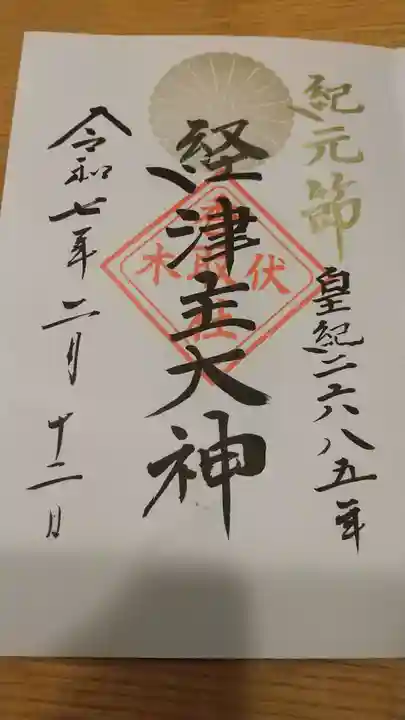 紀元節
皇紀二六八五年
経津主大神
伏木
香取社
令和七年二月十二日